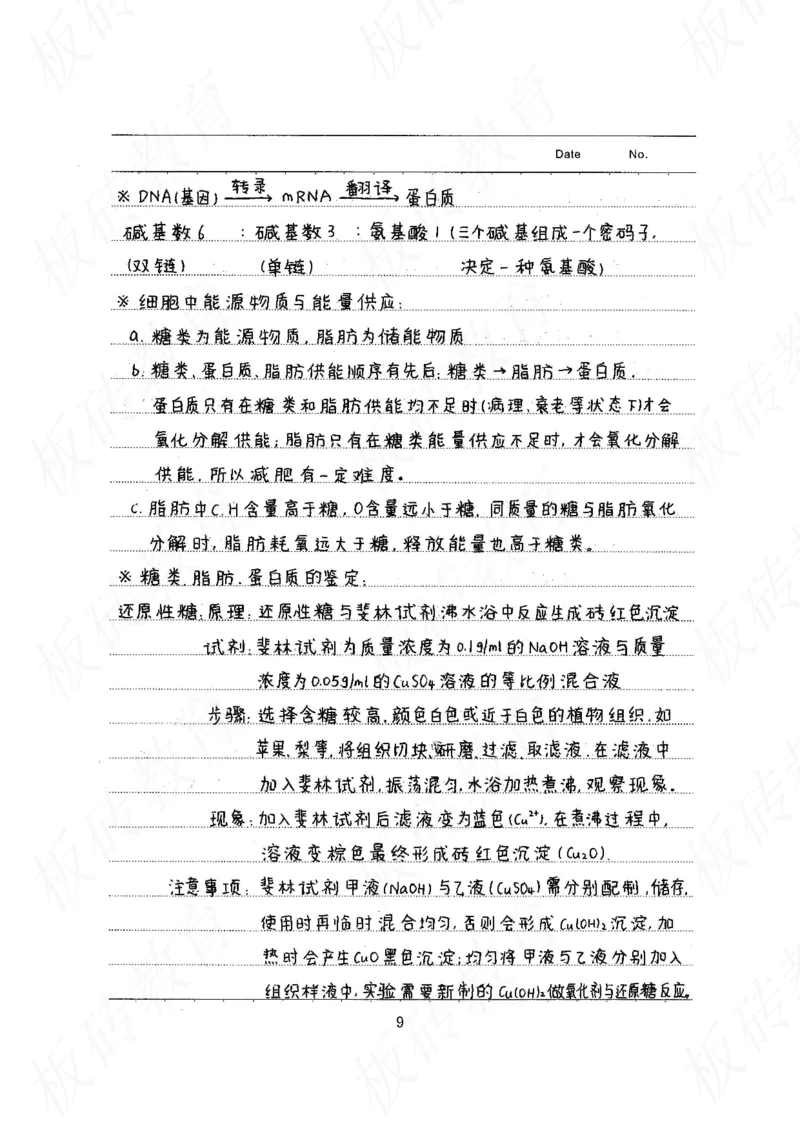 Date No.
※ DNA(基因) 转录→ mRNA 翻译→ 蛋白质
碱基数6 : 碱基数3 : 氨基酸1 (三个碱基组成一个密码子,
(双链) (单链) 决定一种氨基酸)
※ 细胞中能源物质与能量供应:
a. 糖类为能源物质,脂肪为储能物质
b. 糖类、蛋白质、脂肪供能顺序有先后: 糖类→脂肪→蛋白质.
蛋白质只有在糖类和脂肪供能均不足时(病理、衰老等状态下)才会
氧化分解供能; 脂肪只有在糖类能量供应不足时,才会氧化分解
供能.所以减肥有一定难度。
c. 脂肪中C.H含量高于糖,O含量远小于糖.同质量的糖与脂肪氧化
分解时,脂肪耗氧远大于糖,释放能量也高于糖类。
※ 糖类.脂肪.蛋白质的鉴定:
还原性糖:原理:还原性糖与斐林试剂沸水浴中反应生成砖红色沉淀
试剂:斐林试剂为质量浓度为0.1g/ml的NaOH溶液与质量
浓度为0.05g/ml的CuSO₄溶液的等比例混合液
步骤:选择含糖较高.颜色白色或近于白色的植物组织.如
苹果.梨等.将组织切块、研磨.过滤.取滤液.在滤液中
加入斐林试剂,振荡混匀,水浴加热煮沸,观察现象。
现象:加入斐林试剂后滤液变为蓝色(Cu²⁺).在煮沸过程中,
溶液变棕色最终形成砖红色沉淀(Cu₂O).
注意事项:斐林试剂甲液(NaOH)与乙液(CuSO₄)需分别配制,储存.
使用时再临时混合均匀,否则会形成Cu(OH)₂沉淀,加
热时会产生CuO黑色沉淀;均匀将甲液与乙液分别加入
组织样液中.实验需要新制的Cu(OH)₂做氧化剂与还原糖反应。
9
板砖教育